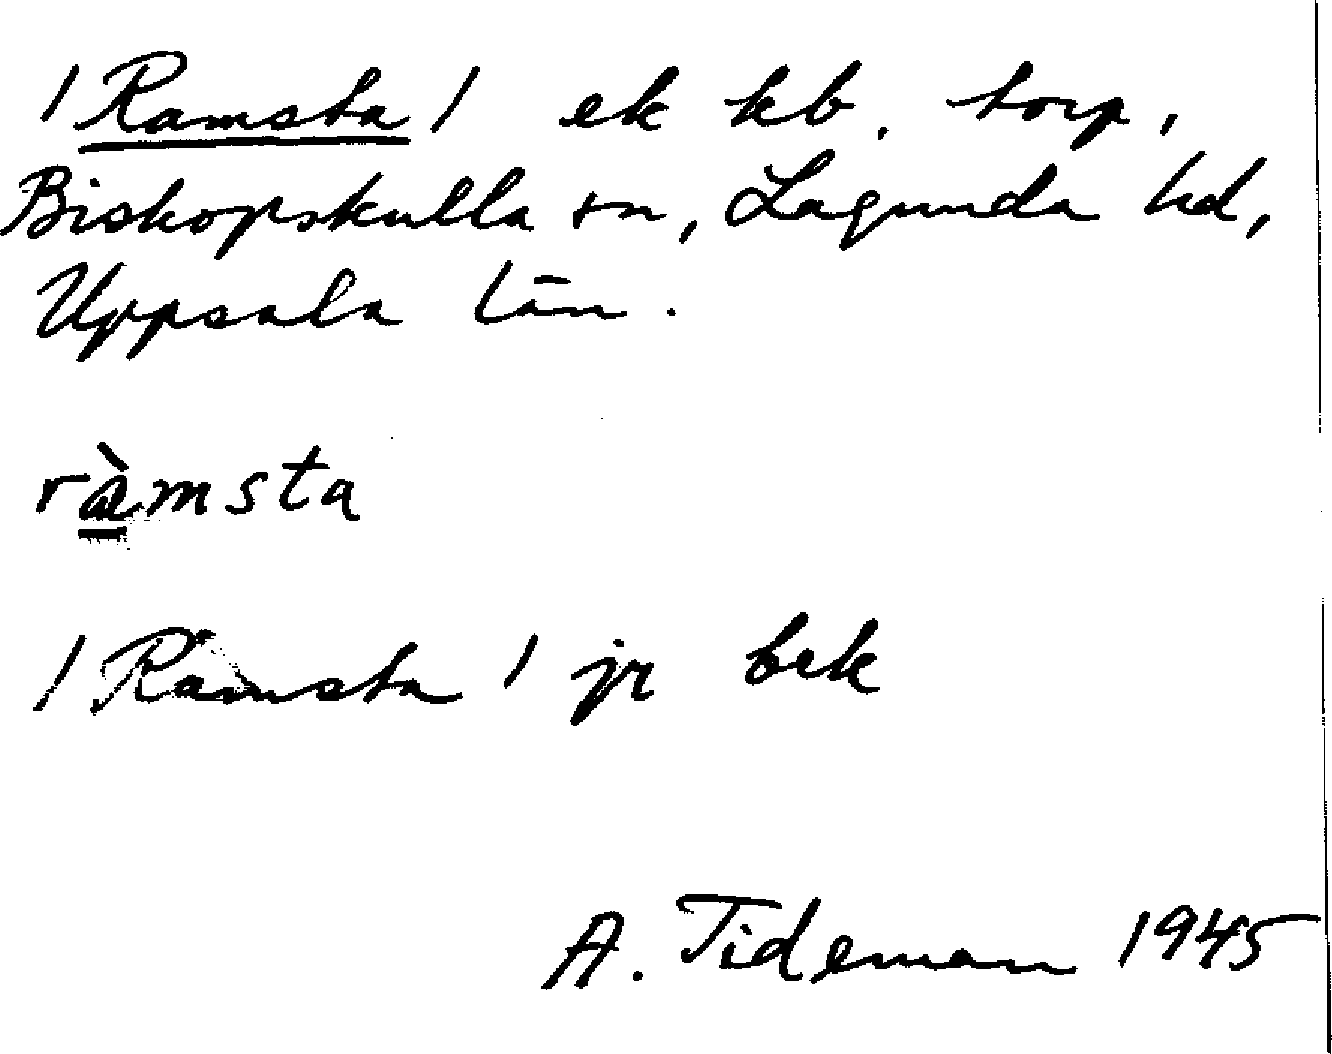 /Ramsta/ ek kb. torp,
Biskopskulla sn, Lagunda hd,
Uppsala län.
ràmsta
/Ramsta/ jr bek
A. Tideman 1945